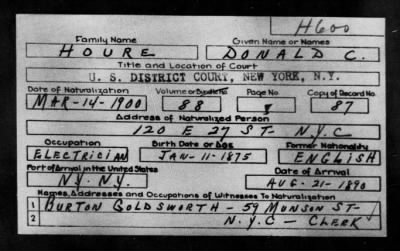 H600
Family Name Given Name or Names
HOURE DONALD C.
Title and Location of Court
U. S. DISTRICT COURT, NEW YORK, N.Y.
Date of Naturalization Volume or Bundle No. Page No. Copy of Record No.
MAR-14-1900 88 87
Address of Naturalized Person
120 E 27 ST- N.Y.C
Occupation Birth Date or Age Former Nationality
ELECTRICIAN JAN-11-1875 ENGLISH
Port of Arrival in the United States Date of Arrival
N.Y. N.Y. AUG-21-1890
Names, Addresses and Occupations of Witnesses To Naturalization
1 BURTON GOLDSWORTH - 59 MONSON ST-
2 N.Y.C - CLERK